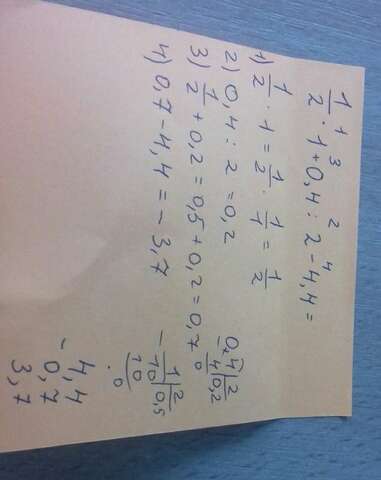 1 3 2 4
1/2 · 1 + 0,4 : 2 - 4,4 =
1) 1/2 · 1 = 1/2 · 1/1 = 1/2
2) 0,4 : 2 = 0,2
3) 1/2 + 0,2 = 0,5 + 0,2 = 0,7
4) 0,7 - 4,4 = - 3,7
0,4 | 2
- 4 | 0,2
0
- 1 | 2
10 | 0,5
10
0
- 4,4
0,7
3,7